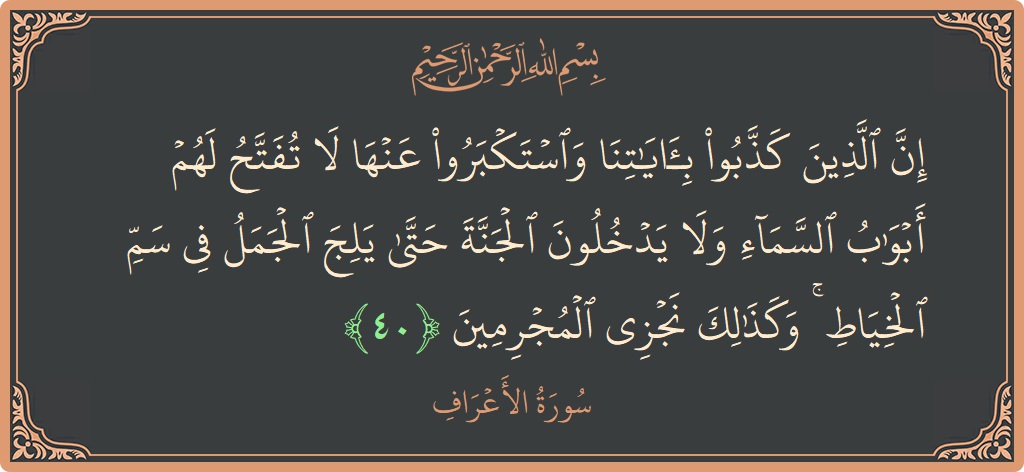 بِسْمِ اللَّهِ الرَّحْمَٰنِ الرَّحِيمِ
إِنَّ ٱلَّذِينَ كَذَّبُوا۟ بِـَٔايَـٰتِنَا وَٱسْتَكْبَرُوا۟ عَنْهَا لَا تُفَتَّحُ لَهُمْ
أَبْوَٰبُ ٱلسَّمَآءِ وَلَا يَدْخُلُونَ ٱلْجَنَّةَ حَتَّىٰ يَلِجَ ٱلْجَمَلُ فِى سَمِّ
ٱلْخِيَاطِ ۚ وَكَذَٰلِكَ نَجْزِى ٱلْمُجْرِمِينَ ﴿٤٠﴾
سُورَةُ الأَعْرَافِ